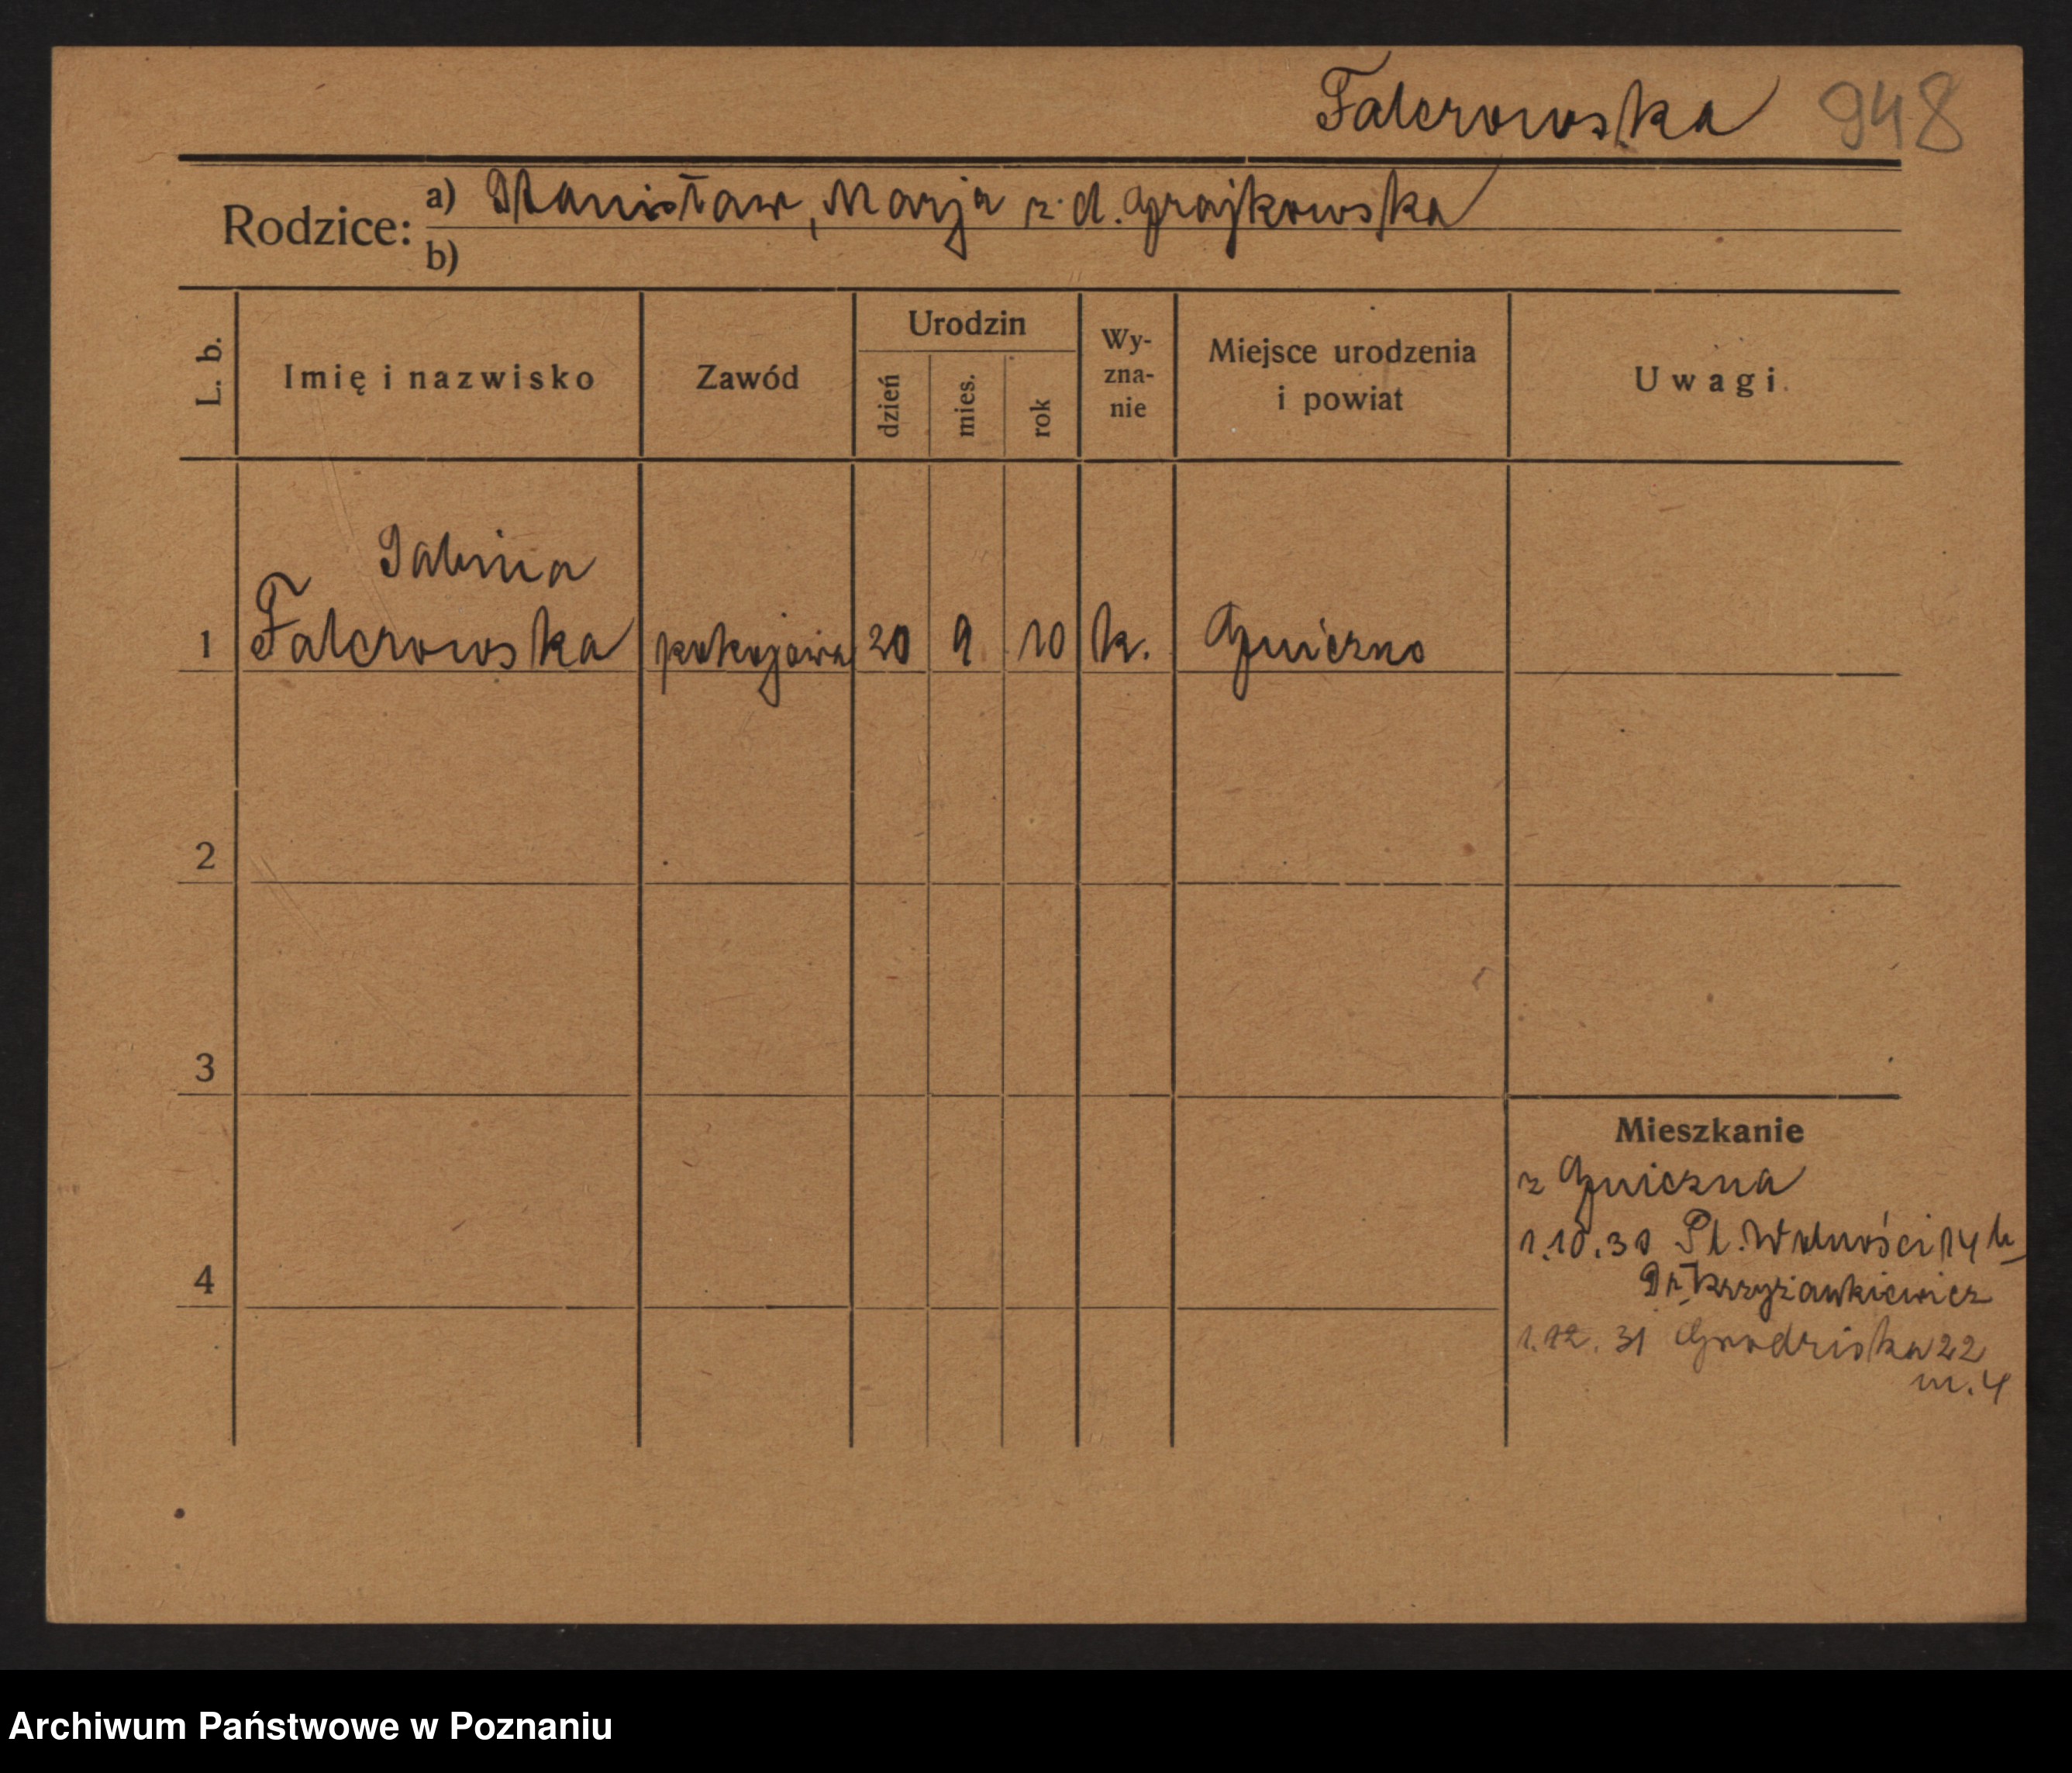 Falczowska 948
Rodzice: a) Stanisław, Marja z d. Grajkowska
b)
L. b.
Imię i nazwisko
Zawód
Urodzin
dzień
mies.
rok
Wy-
zna-
nie
Miejsce urodzenia
i powiat
Uwagi
Sabina
1 Falczowska pokojowa 20 9 10 k. Gniezno
2
3
Mieszkanie
z Gniezna
1.10.30 Pl. Wolności 14 b
Dr Krzyżankiewicz
4
1.12.31 Grodziska 22
m. 4
Archiwum Państwowe w Poznaniu